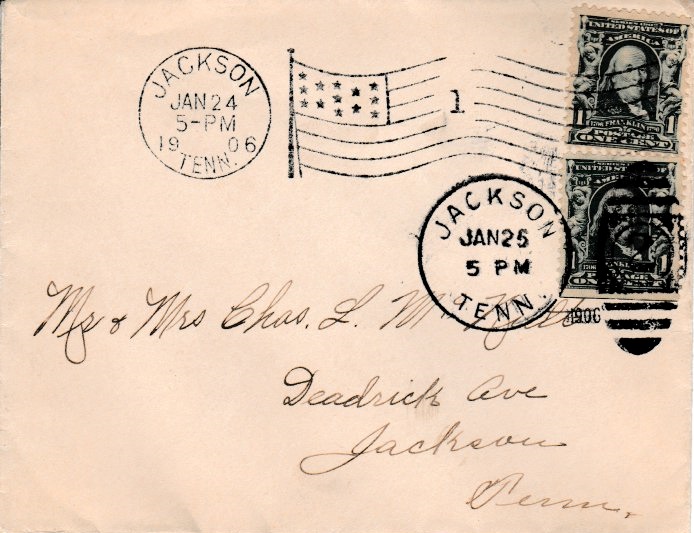 JACKSON
JAN 24
5-PM
1906
TENN.
1
SERIES 1902
UNITED STATES OF
AMERICA
1706 FRANKLIN 1790
1 POSTAGE 1
ONE CENT
JACKSON
JAN 25
5 PM
TENN.
1906
UNITED STATES OF
AMERICA
1706
1 POSTAGE 1
ONE CENT
Mr & Mrs Chas. L. Mc
Deadrick Ave
Jackson
Tenn.